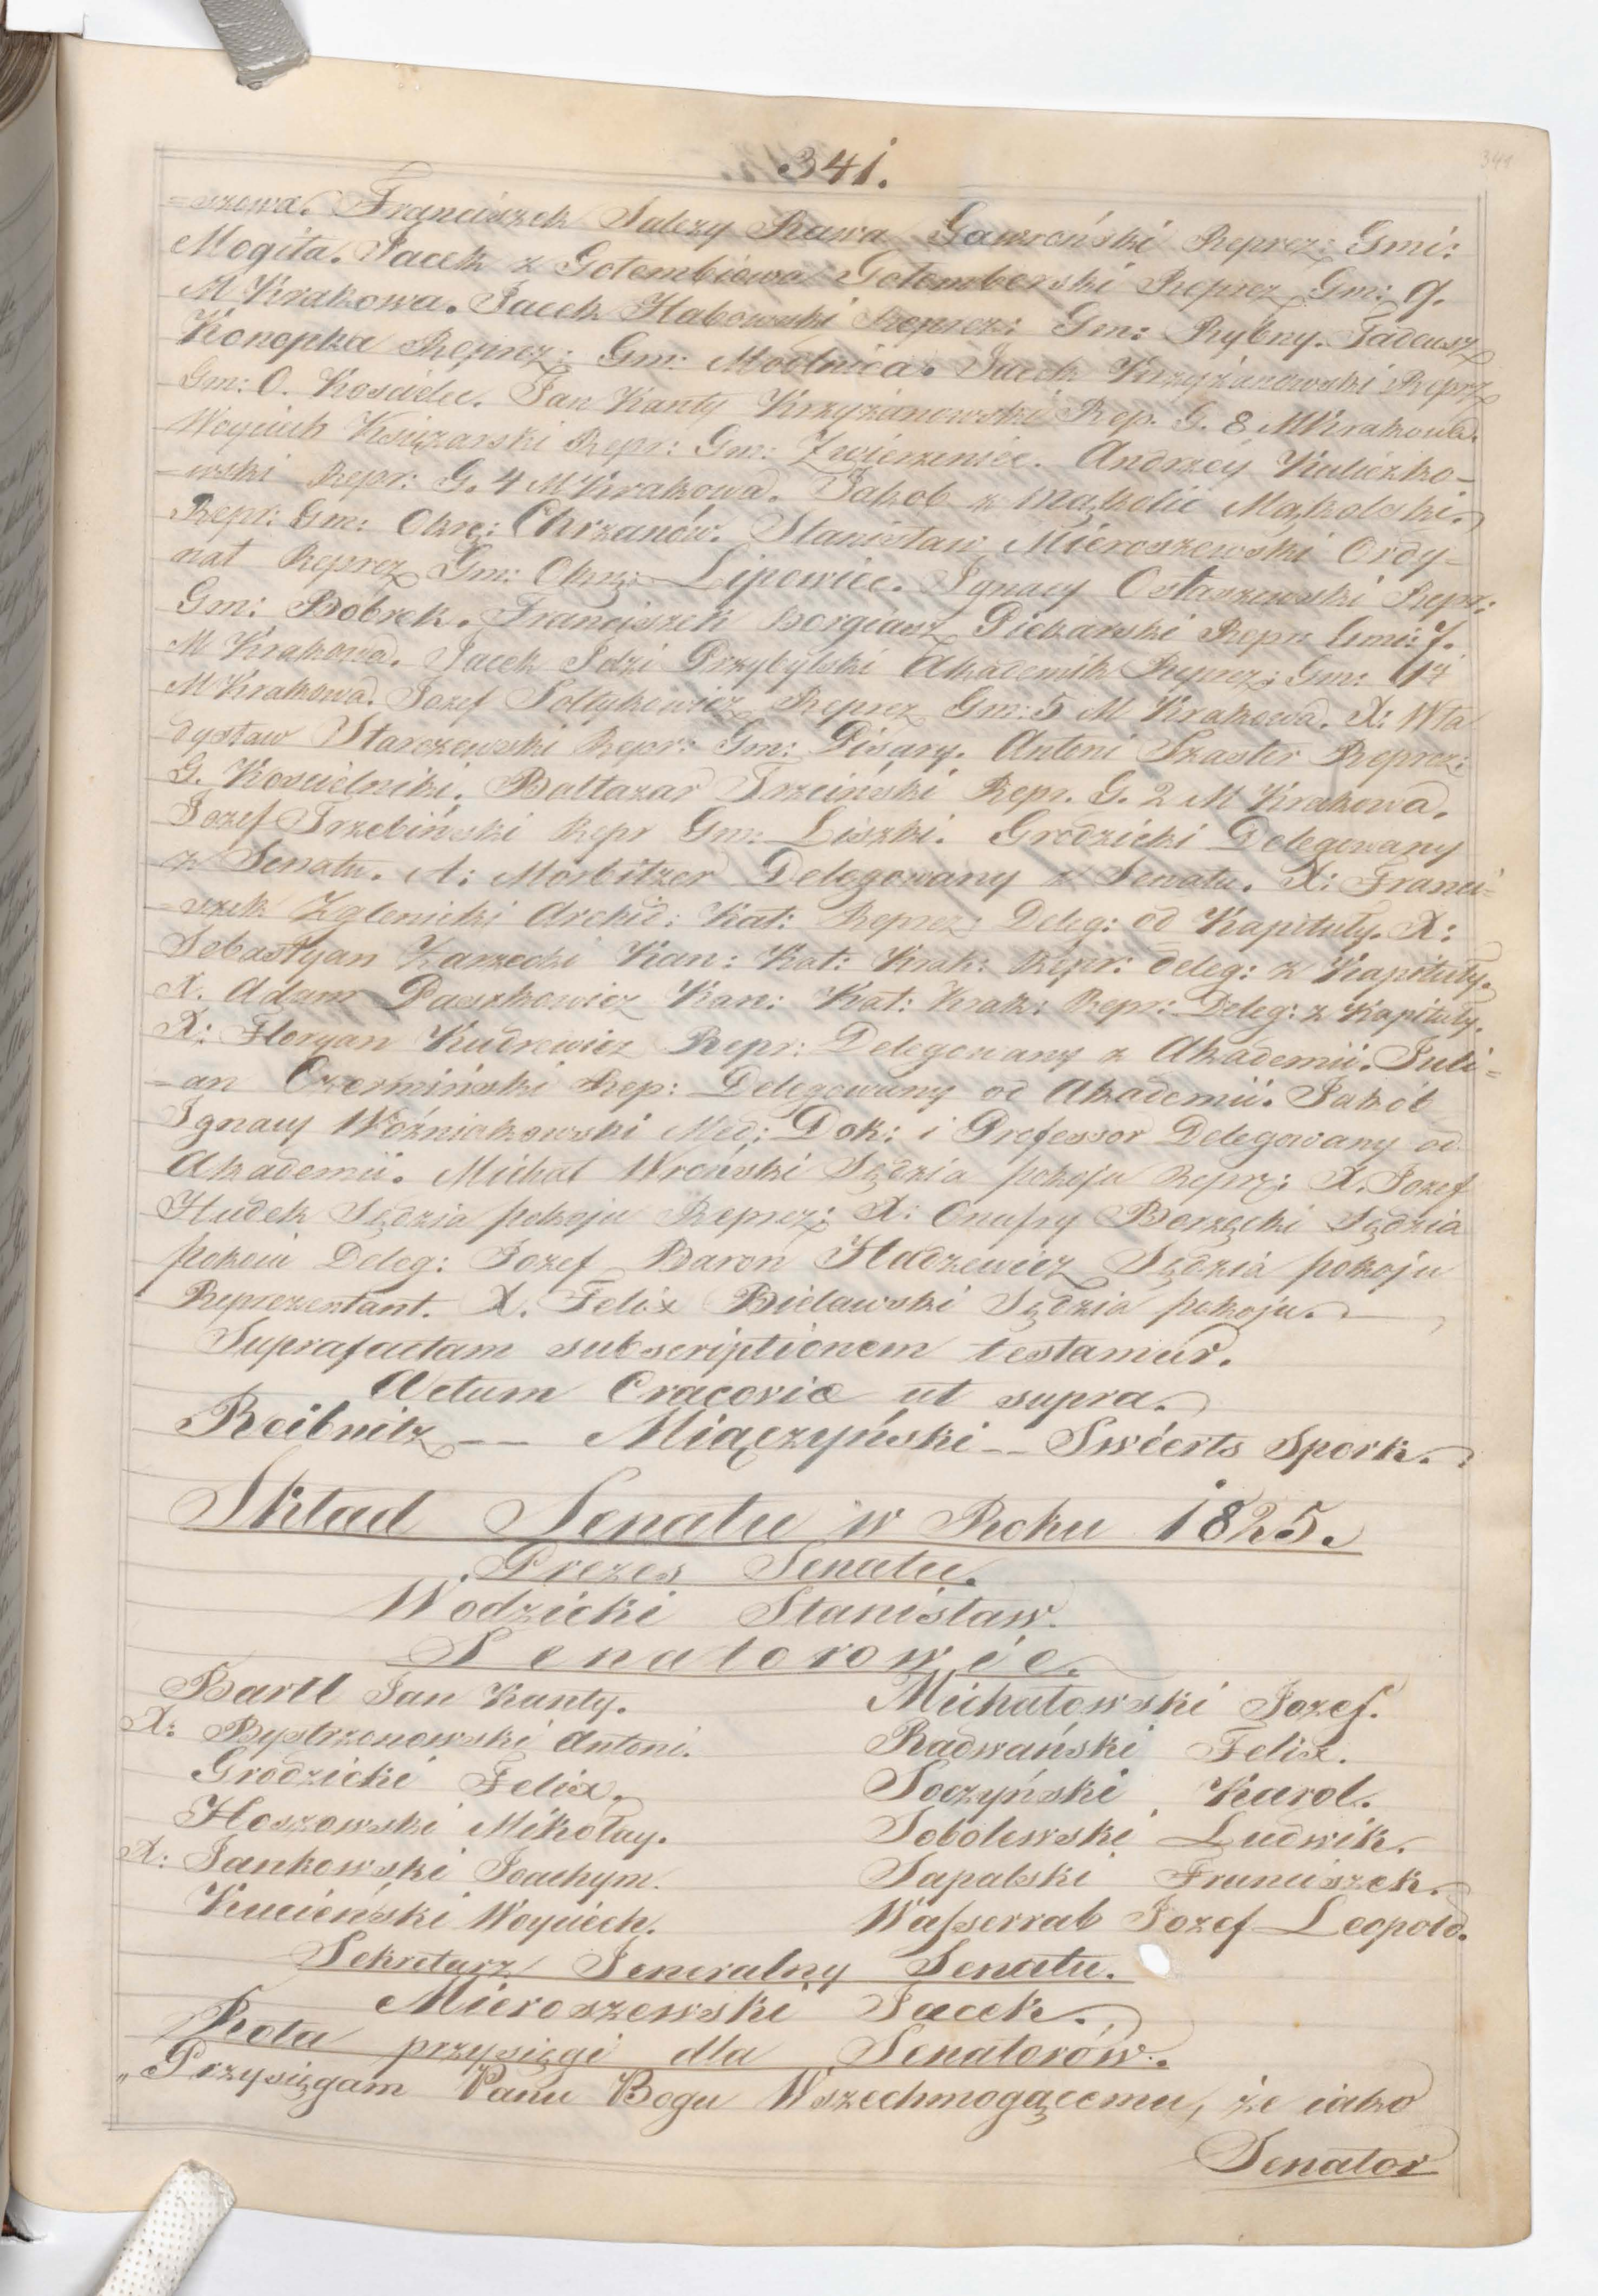 341.
341
=szowa. Franciszek Salezy Rawa Gawroński Reprez: Gmi:
Mogiła. Jacek z Gołembiowa Gołemberski Reprez Gm: 9.
M Krakowa. Jacek Habowski Reprez: Gm: Rybny. Tadeusz
Konopka Reprez: Gm: Modlnica. Jacek Krzyżanowski Reprz
Gm: O. Kościelec. Jan Kanty Krzyżanowski Rep. G. 8 M Krakowa.
Woyciech Księżarski Repr: Gm: Zwierzeniec. Andrzey Kuliczko-
-wski Repr: G. 4 M Krakowa. Jakob z Mąkolic Mąkolski.
Repr: Gm: Okrę: Chrzanów. Stanisław Mieroszewski Ordy-
nat Reprez Gm: Okrę: Lipowiec. Ignacy Ostaszewski Repr:
Gm: Bobrek. Franciszek Borgiasz Piekarski Repr. Gmi: 7.
M Krakowa. Jacek Idzi Przybylski Akademik Reprez: Gm:
M Krakowa. Jozef Sołtykowicz Reprez Gm: 5 M Krakowa. X: Wła
dysław Starczewski Repr: Gm: Pisary. Antoni Szaster Reprez:
G. Kościelniki. Baltazar Trzciński Repr. G. 2 M Krakowa.
Jozef Trzebiński Repr Gm: Liszki. Grodzicki Delegowany
z Senatu. A: Morbitzer Delegowany z Senatu. X: Franci=
=szek Zglenicki Archid: Kat: Reprez: Deleg: od Kapituły. X:
Sebastyan Karzecki Kan: Kat: Krak: Repr: deleg: z Kapituły.
X. Adam Paszkowicz Kan: Kat: Krak: Repr: Deleg: z Kapituły.
X: Floryan Kudrewicz Repr: Delegowany z Akademii. Juli=
=an Czermiński Rep: Delegowany od Akademii. Jakób
Ignacy Woźniakowski Med: Dok: i Professor Delegowany od
Akademii. Michał Wroński Sędzia pokoju Reprz: X. Jozef
Hudek Sędzia pokoju Reprez: X: Onufry Borzęcki Sędzia
pokoiu Deleg: Jozef Baron Hadzewicz Sędzia pokoju
Reprezentant. X. Felix Bielawski Sędzia pokoju.
Suprafactam subscriptionem testamur.
Actum Cracoviæ ut supra.
Reibnitz -- Miączyński -- Swéerts Spork.
Skład Senatu w Roku 1825.
Prezes Senatu.
Wodzicki Stanisław.
Senatorowie.
Bartl Jan Kanty.
X: Bystrzonowski Antoni.
Grodzicki Felix.
Hoszowski Mikołay.
X: Jankowski Joachym.
Kucieński Woyciech.
Michałowski Jozef.
Radwański Felix.
Soczyński Karol.
Sobolewski Ludwik.
Sapalski Franciszek.
Wasserrab Jozef Leopold.
Sekretarz Jeneralny Senatu.
Mieroszewski Jacek.
Rota przysięgi dla Senatorów.
„Przysięgam Panu Bogu Wszechmogącemu, że iako
Senator